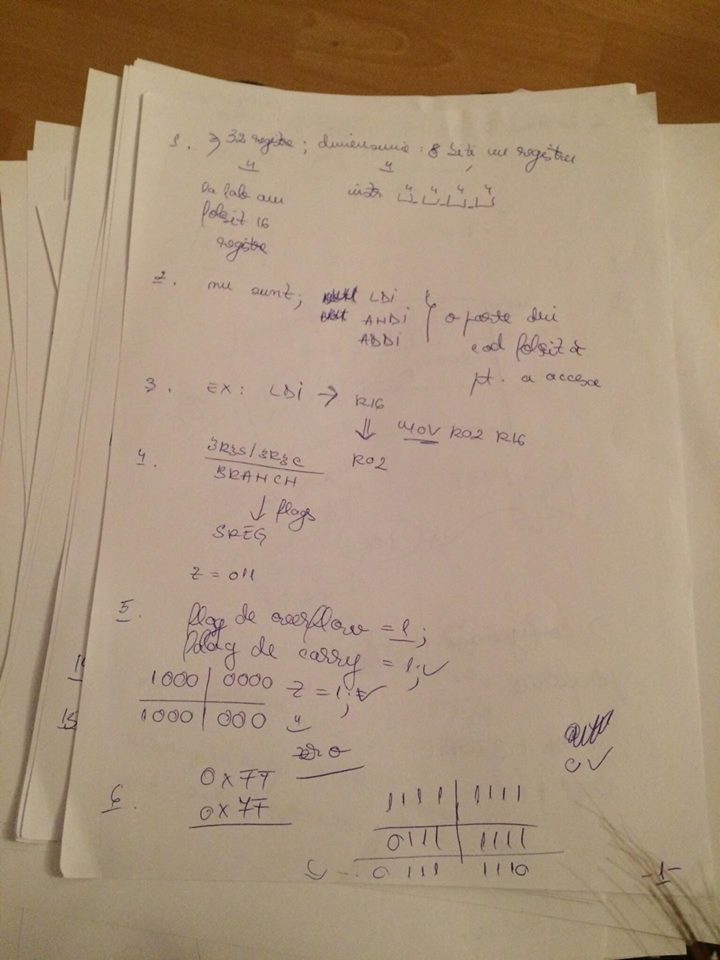 1. ≥ 32 registre; dimensiunea: 8 biți un registru
4 4
La lab am instr. 4 4 4 4
folosit 16
registre
2. nu sunt; LDI
ANDI o parte din
ADDI cod folosit
pt. a accesa
3. EX: LDI → R16
⇓ MOV R02 R16
R02
4. BRBS/BRBC
BRANCH
↓ flags
SREG
Z = 011
5. flag de overflow = 1;
flag de carry = 1; ✓
1000 | 0000 Z = 1; ✓
1000 | 000 "
zero
6. 0xFF
0x7F
1111 | 1111 ✓
0111 | 1111
0111 1110
-1-